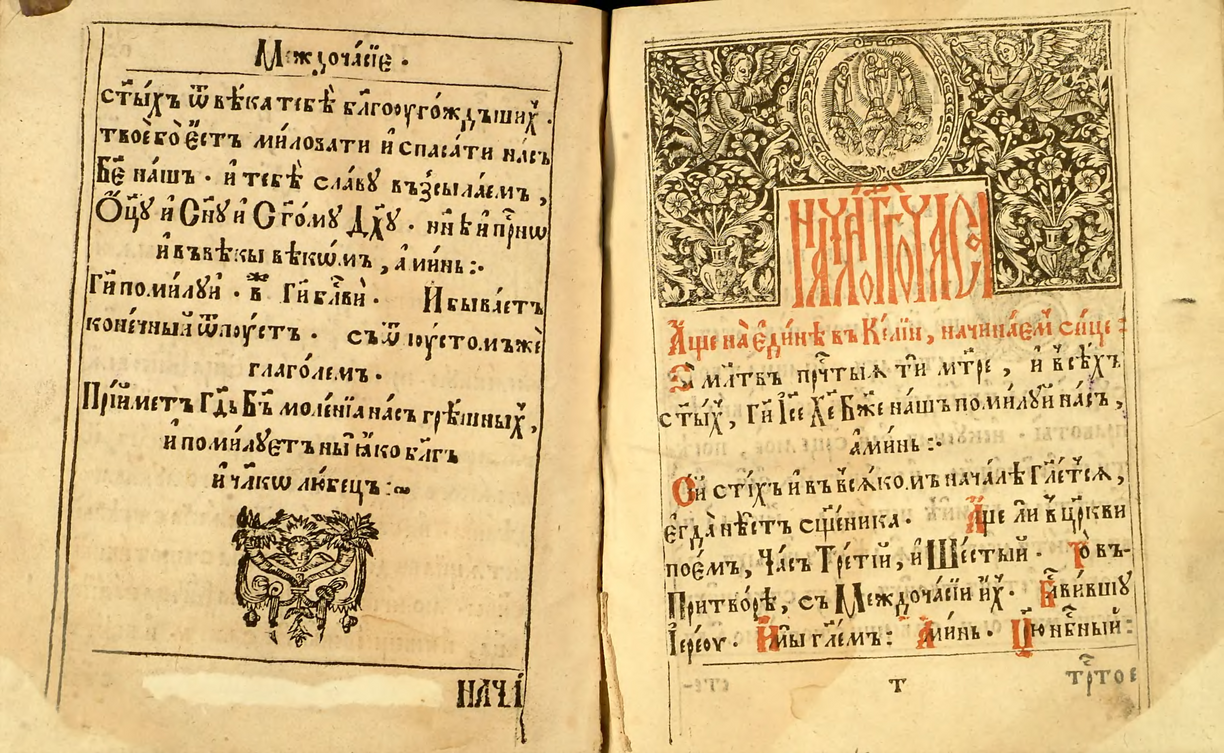 Междочасїе .
ст҃ы́хъ ѿ вѣ́ка тебѣ̀ бл҃гоѹго́ждьших̾ .
твоѐ бо є҆́стъ ми́ловати и҆ спаса́ти на́съ
Бж҃е на́шъ . и҆ тебѣ̀ сла́ву въ́зсыла́емъ ,
Ѻ҆ц҃у и҆ Сн҃у и҆ Ст҃о́му Дх҃у . нн҃ѣ и҆ пр҃нѡ
и҆ въ вѣ́кы вѣкѡ́мъ , а҆ми́нь :·
Гп҃и поми́луй . в҃ж Гп҃и бл҃ви . И҆ быва́етъ
коне́чный ѿпу́стъ . съ ѿ пустомъ же
глаго́лемъ .
Прїи́метъ Гд҃ь Бъ҃ моле́нїа на́съ грѣ́шных̾ ,
и҆ поми́луетъ ны ꙗ҆́ко бл҃гъ
и҆ чл҃кѡ лю́бецъ :~
НАЧА́
А҆́ще на є҆ди́нѣ въ Ке́лїи , начина́ем̾ си́це :
За мл҃твъ прч҃тыѧ ти м҃тре , и҆ всѣ́хъ
ст҃ы́х̾ , Гп҃и І҆се Хе҃ Бж҃е на́шъ поми́луй на́съ ,
а҆ми́нь :·
Сїй сті́хъ и҆ въ всѧ́комъ нача́лѣ гл҃етсѧ ,
є҆гда̀ нѣ́стъ сщ҃е́ника . А҆́ще ли в̾ цр҃кви
пое́мъ , Ча́съ Тре́тїй , и҆ Ше́стый . То̀ въ-
Притво́рѣ , съ Междоча́сїи и҆́х̾ . Бл҃ви́вшу
І҆ере́оу . И҆ мы гл҃е́м̾ : А҆ми́нь . Цр҃ю нб҃ный :
т
тр҃тое